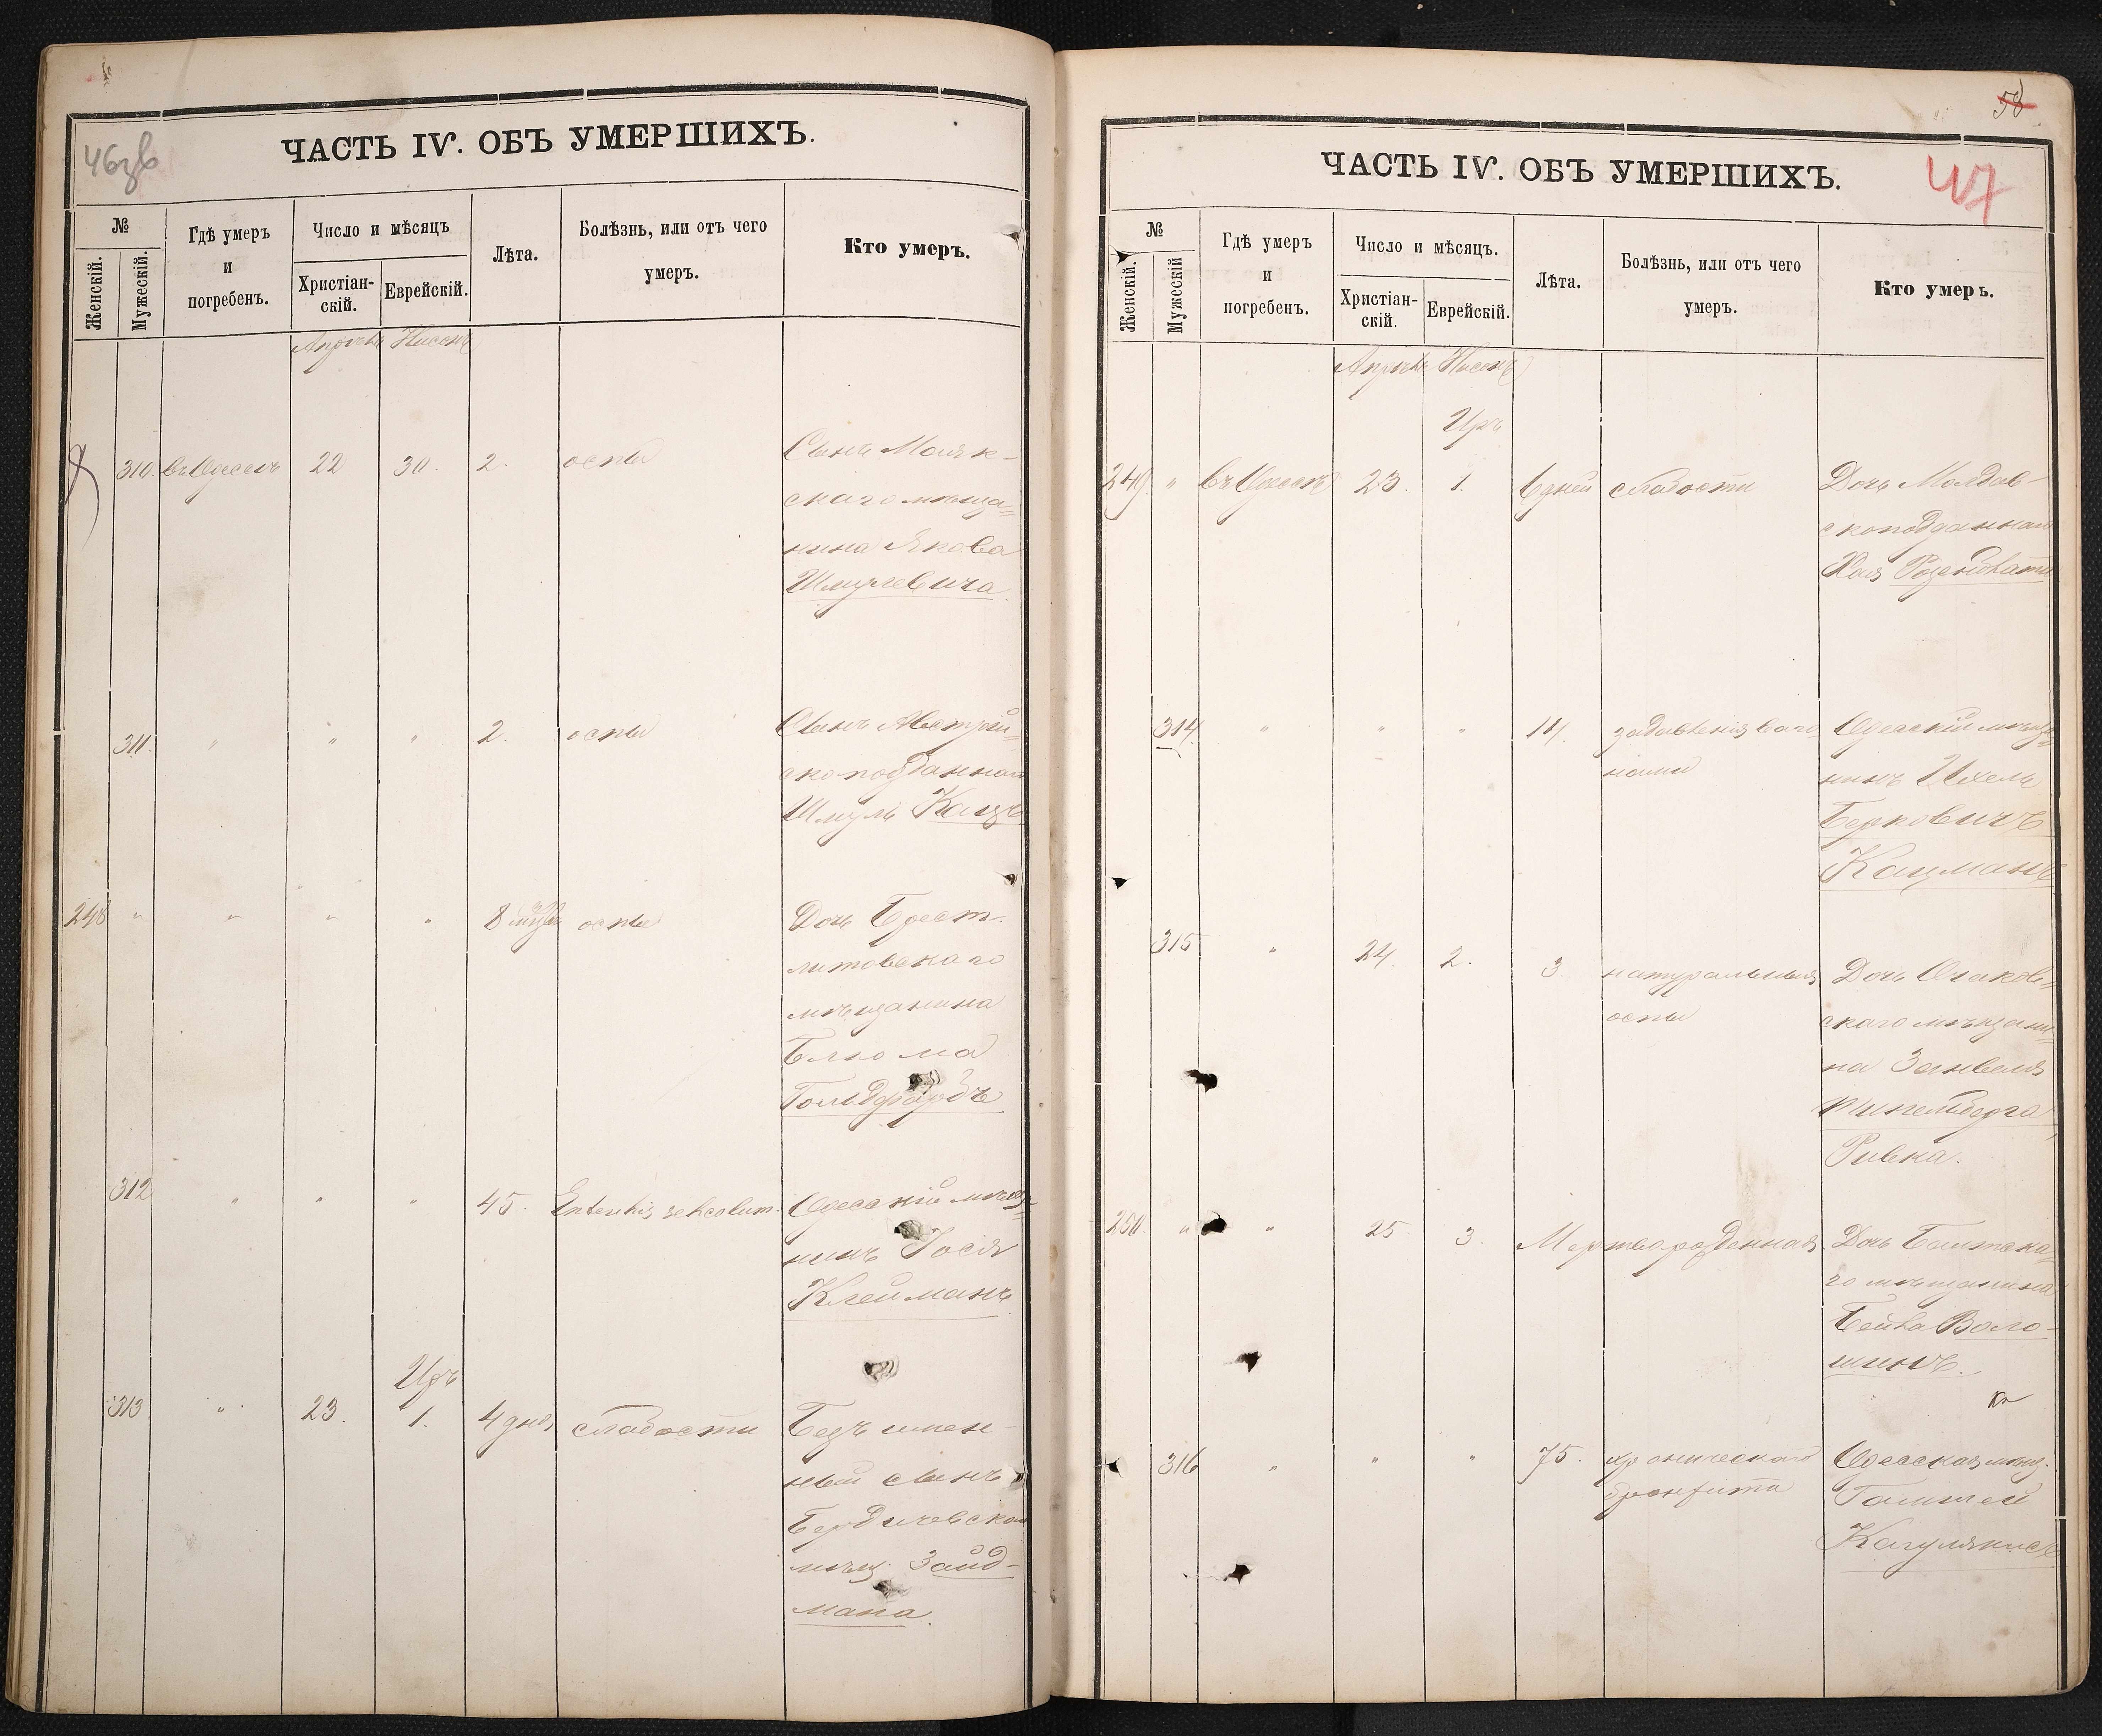 46зв
ЧАСТЬ IV. ОБЪ УМЕРШИХЪ.
№
Женскій.
Мужескій.
Гдѣ умеръ
и
погребенъ.
Число и мѣсяцъ
Христіан-
скій.
Еврейскій.
Лѣта.
Болѣзнь, или отъ чего
умеръ.
Кто умеръ.
Апрѣль Нисенъ
310. въ Одессѣ 22 30. 2. оспы Сынъ Маяк-
скаго мѣща=
нина Якова
Шмулевича.
311. " " " 2. оспы Сынъ Австрій=
скоподданнаго
Шмуль Кацъ
248 " " " " 8 оспы Дочь Брест.
литовскаго
мѣщанина
Блюма
Гольдфарбъ
312 " " " 45. Одесскій мѣща=
нинъ Іося
Клейманъ.
Иръ
313 " 23. 1. 4 дня слабости Безъимен-
ный сынъ
Бердичевскаго
мѣщ. Зайд-
мана.
58
47
ЧАСТЬ IV. ОБЪ УМЕРШИХЪ.
№
Женскій.
Мужескій
Гдѣ умеръ
и
погребенъ.
Число и мѣсяцъ.
Христіан-
скій.
Еврейскій.
Лѣта.
Болѣзнь, или отъ чего
умеръ.
Кто умеръ.
Апрѣль Нисенъ
Иръ
249 " въ Одессѣ 23. 1. 6 дней слабости Дочь Молдав-
скоподданнаго
Хая
314 " " " 14. задавленія ваго
нами Одесскій мѣща=
нинъ Ихель
Берковичъ
Кацманъ
315 " 24. 2. 3. натуральныя
оспы Дочь Очаков=
скаго мѣщани=
на Занвеля
Ривка.
250. " " 25 3. Мертворожденная. Дочь Балтска=
го мѣщанина
Бейла Воло-
шинъ.
316 " " " 75. хроническаго
бронхита Одесская мѣщ.